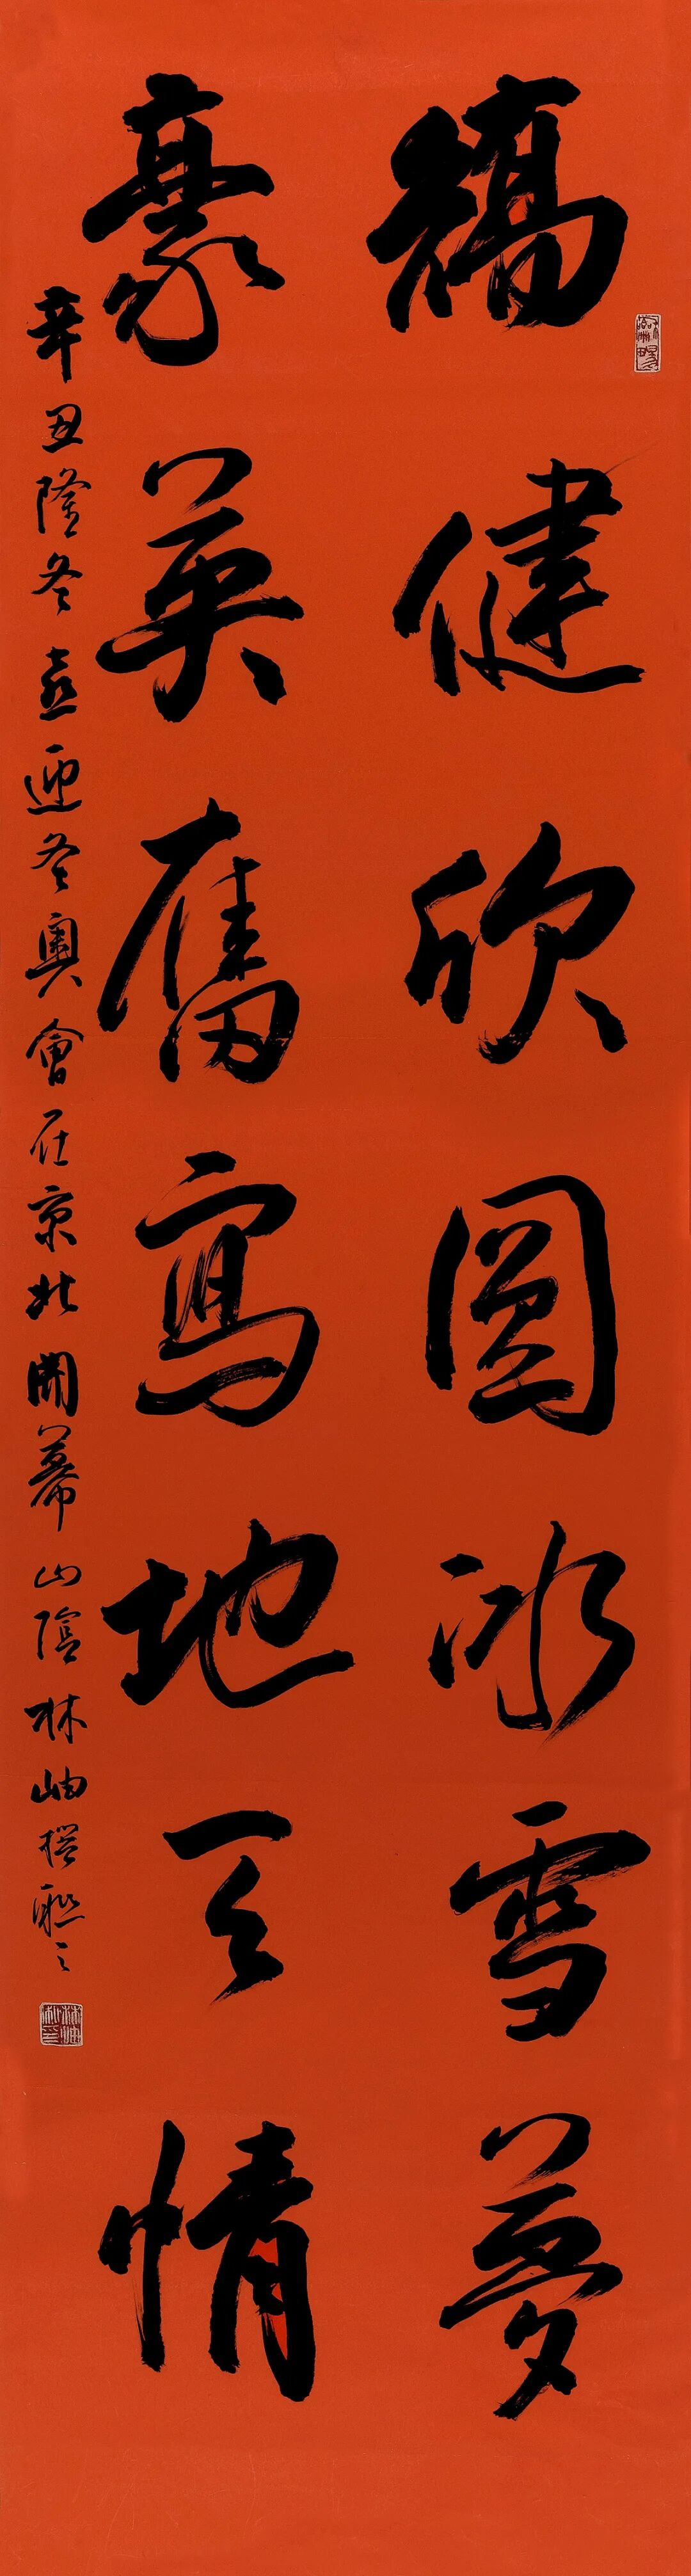 矯健欣圓冰雪夢
豪英奮寫地天情
辛丑隆冬喜迎冬奧會在京北開幕山陰林岫撰聯之